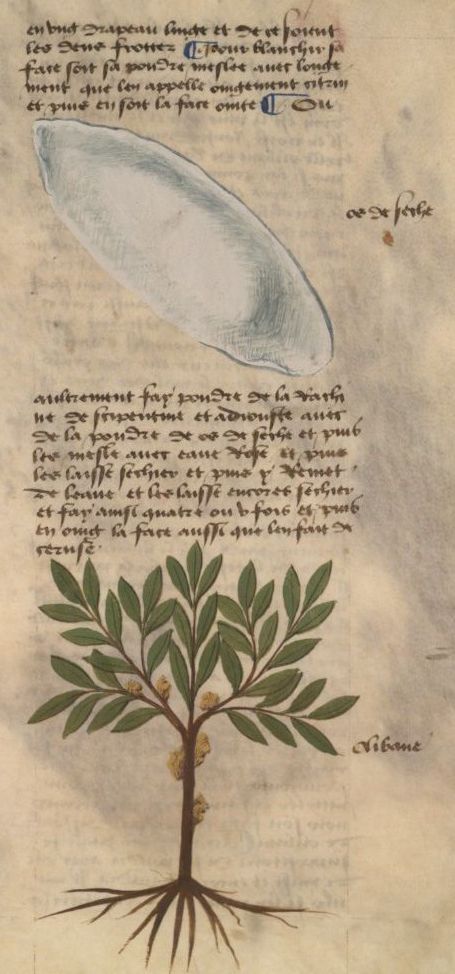 en ung drapeau linge et de ce soient
les dens frottez ¶ Pour blanchir sa
face soit sa poudre meslee avec longe
ment que len appelle oingement citrin
et puis en soit la face ointe ¶ Ou
os de seche
aultrement fay poudre de la Rachi
ne de serpentine et adiouste avec
de la poudre de os de seche et puis
les mesle avec eaue Rose et puis
les laisse sechier et puis y Remet
de leaue et les laisse encores sechier
et fay ainsi quatre ou v fois et puis
en oing la face aussi que len fait de
ceruse
Olibane